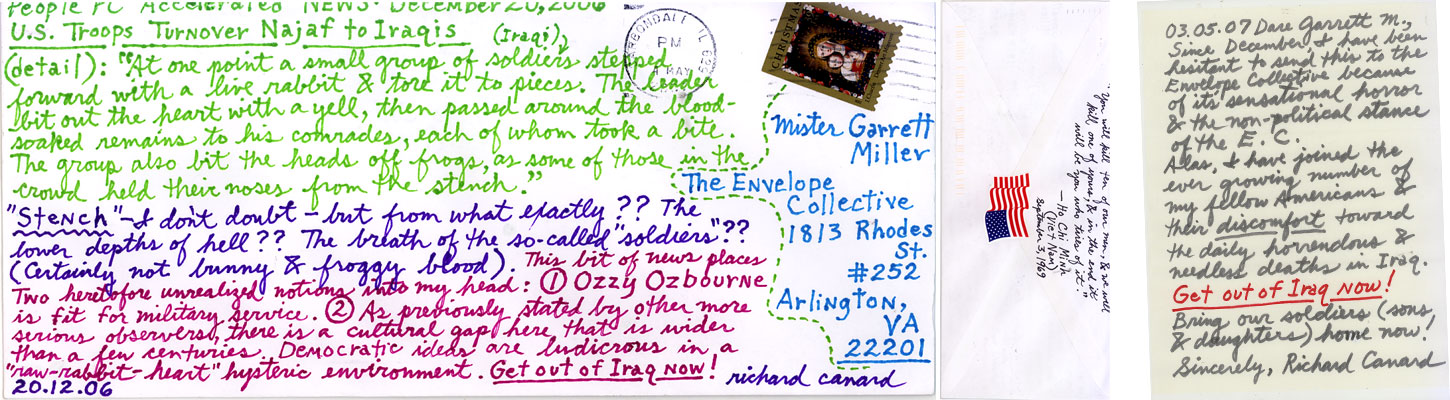 People PC Accelerated News - December 20, 2006
U.S. Troops Turnover Najaf to Iraqis (Iraqi),
(detail): "At one point a small group of soldiers stepped
forward with a live rabbit & tore it to pieces. The leader
bit out the heart with a yell, then passed around the blood-
soaked remains to his comrades, each of whom took a bite.
The group also bit the heads off frogs, as some of those in the
crowd held their noses from the stench."
"Stench" - I don't doubt - but from what exactly ?? The
lower depths of hell?? The breath of the so-called "soldiers"??
(Certainly not bunny & froggy blood). This bit of news places
Two heretofore unrealized notions into my head: ① Ozzy Ozbourne
is fit for military service. ② As previously stated by other more
serious observers, there is a cultural gap here that is wider
than a few centuries. Democratic ideas are ludicrous in a
"raw-rabbit-heart" hysteric environment. Get out of Iraq now!
20.12.06
richard canard
CARBONDALE IL
PM
MAY
CHRISTMAS
Mister Garrett
Miller
The Envelope
Collective
1813 Rhodes
St.
#252
Arlington,
VA
22201
"You will kill ten of our men, & we will
kill one of yours, & in the end it
will be you who tires of it."
— Ho Chi Minh
(Viet Nam)
September 3, 1969
03.05.07 Dare Garrett M.,
Since December I have been
hesitant to send this to the
Envelope Collective because
of its sensational horror
& the non-political stance
of the E. C.
Alas, I have joined the
ever growing number of
my fellow Americans &
their discomfort toward
the daily horrendous &
needless deaths in Iraq.
Get out of Iraq now!
Bring our soldiers (sons,
& daughters) home now!
Sincerely, Richard Canard